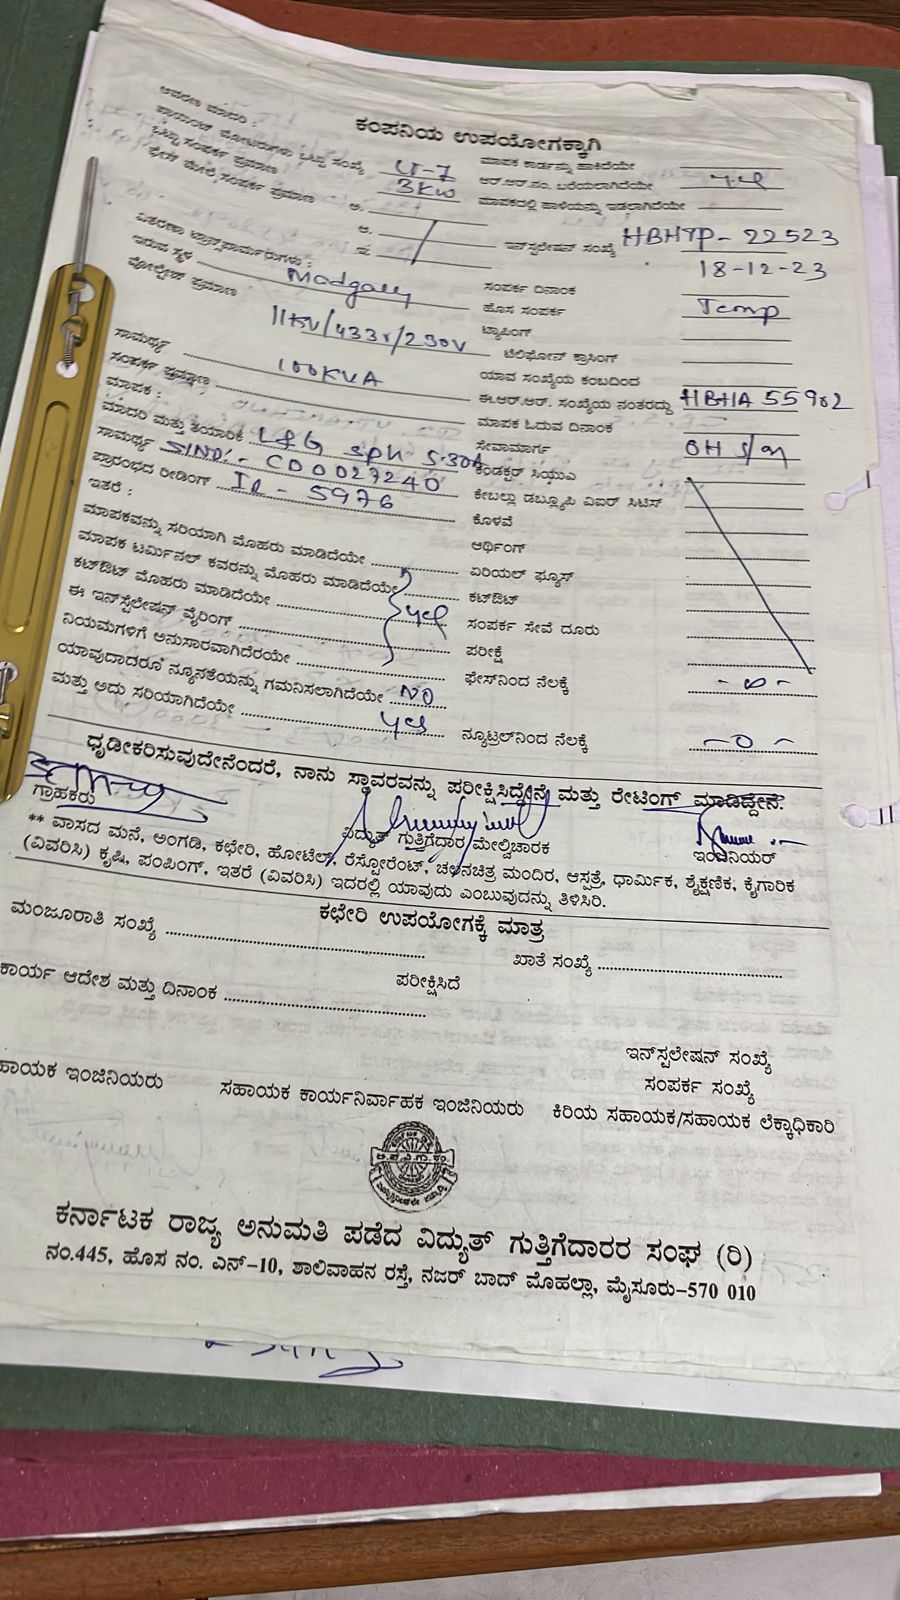 ಕಂಪನಿಯ ಉಪಯೋಗಕ್ಕಾಗಿ
ಆವರಣ ಮಾದರಿ :
ಒಟ್ಟು ಸಂಪರ್ಕ ಪ್ರಮಾಣ LT-7
3KW
ಅ.
ಆ.
ಇ.
ವಿತರಣಾ ಟ್ರಾನ್ಸ್‌ಫಾರ್ಮರುಗಳು :
ಇರುವ ಸ್ಥಳ
ವೋಲ್ಟೇಜ್ ಪ್ರಮಾಣ 11KV/433v/230V
ಸಾಮರ್ಥ್ಯ 100KVA
ಸಂಪರ್ಕ ಪ್ರಮಾಣ
ಮಾಪಕ :
ಮಾದರಿ ಮತ್ತು ತಯಾರಿಕೆ L&G
ಸಾಮರ್ಥ್ಯ CD0027240
ಪ್ರಾರಂಭದ ರೀಡಿಂಗ್ IR - 5976
ಇತರೆ :
ಮಾಪಕವನ್ನು ಸರಿಯಾಗಿ ಮೊಹರು ಮಾಡಿದೆಯೇ
ಮಾಪಕ ಟರ್ಮಿನಲ್ ಕವರನ್ನು ಮೊಹರು ಮಾಡಿದೆಯೇ
ಕಟ್‌ಔಟ್ ಮೊಹರು ಮಾಡಿದೆಯೇ yes
ಈ ಇನ್‌ಸ್ಟಲೇಷನ್ ವೈರಿಂಗ್
ನಿಯಮಗಳಿಗೆ ಅನುಸಾರವಾಗಿದೆರಯೇ
ಯಾವುದಾದರೂ ನ್ಯೂನತೆಯನ್ನು ಗಮನಿಸಲಾಗಿದೆಯೇ NO
ಮತ್ತು ಅದು ಸರಿಯಾಗಿದೆಯೇ yes
ಮಾಪಕ ಕಾರ್ಡನ್ನು ಹಾಕಿದೆಯೇ
ಆರ್.ಆರ್.ನಂ. ಬರೆಯಲಾಗಿದೆಯೇ yes
ಮಾಪಕದಲ್ಲಿ ಹಾಳೆಯನ್ನು ಇಡಲಾಗಿದೆಯೇ
ಇನ್‌ಸ್ಟಲೇಷನ್ ಸಂಖ್ಯೆ HBHTP - 22523
ಸಂಪರ್ಕ ದಿನಾಂಕ 18-12-23
ಹೊಸ ಸಂಪರ್ಕ Temp
ಟ್ಯಾಪಿಂಗ್
ಟೆಲಿಫೋನ್ ಕ್ರಾಸಿಂಗ್
ಯಾವ ಸಂಖ್ಯೆಯ ಕಂಬದಿಂದ
ಈ.ಆರ್.ಆರ್. ಸಂಖ್ಯೆಯ ನಂತರದ್ದು HBHA 55902
ಮಾಪಕ ಓದುವ ದಿನಾಂಕ
ಸೇವಾಮಾರ್ಗ OH
ಕಂಡಕ್ಟರ್ ಸಿಯುಎ
ಕೇಬಲ್ಲು ಡಬ್ಲ್ಯೂಪಿ ವಿಐರ್ ಸಿಟಿಸ್
ಕೊಳವೆ
ಆರ್ಥಿಂಗ್
ಏರಿಯಲ್ ಫ್ಯೂಸ್
ಕಟ್‌ಔಟ್
ಸಂಪರ್ಕ ಸೇವೆ ದೂರು
ಪರೀಕ್ಷೆ
ಫೇಸ್‌ನಿಂದ ನೆಲಕ್ಕೆ - 0 -
ನ್ಯೂಟ್ರಲ್‌ನಿಂದ ನೆಲಕ್ಕೆ - 0 -
ಧೃಡೀಕರಿಸುವುದೇನೆಂದರೆ, ನಾನು ಸ್ಥಾವರವನ್ನು ಪರೀಕ್ಷಿಸಿದ್ದೇನೆ ಮತ್ತು ರೇಟಿಂಗ್ ಮಾಡಿದ್ದೇನೆ.
ಗ್ರಾಹಕರು ವಿದ್ಯುತ್ ಗುತ್ತಿಗೆದಾರ ಮೇಲ್ವಿಚಾರಕ ಇಂಜಿನಿಯರ್
** ವಾಸದ ಮನೆ, ಅಂಗಡಿ, ಕಛೇರಿ, ಹೋಟೆಲ್, ರೆಸ್ಟೋರೆಂಟ್, ಚಲನಚಿತ್ರ ಮಂದಿರ, ಆಸ್ಪತ್ರೆ, ಧಾರ್ಮಿಕ, ಶೈಕ್ಷಣಿಕ, ಕೈಗಾರಿಕ
(ವಿವರಿಸಿ) ಕೃಷಿ, ಪಂಪಿಂಗ್, ಇತರೆ (ವಿವರಿಸಿ) ಇದರಲ್ಲಿ ಯಾವುದು ಎಂಬುವುದನ್ನು ತಿಳಿಸಿರಿ.
ಕಛೇರಿ ಉಪಯೋಗಕ್ಕೆ ಮಾತ್ರ
ಮಂಜೂರಾತಿ ಸಂಖ್ಯೆ ಖಾತೆ ಸಂಖ್ಯೆ
ಪರೀಕ್ಷಿಸಿದೆ
ಕಾರ್ಯ ಆದೇಶ ಮತ್ತು ದಿನಾಂಕ
ಇನ್‌ಸ್ಟಲೇಷನ್ ಸಂಖ್ಯೆ
ಸಂಪರ್ಕ ಸಂಖ್ಯೆ
ಹಾಯಕ ಇಂಜಿನಿಯರು ಸಹಾಯಕ ಕಾರ್ಯನಿರ್ವಾಹಕ ಇಂಜಿನಿಯರು ಕಿರಿಯ ಸಹಾಯಕ/ಸಹಾಯಕ ಲೆಕ್ಕಾಧಿಕಾರಿ
ಕರ್ನಾಟಕ ರಾಜ್ಯ ಅನುಮತಿ ಪಡೆದ ವಿದ್ಯುತ್ ಗುತ್ತಿಗೆದಾರರ ಸಂಘ (ರಿ)
ನಂ.445, ಹೊಸ ನಂ. ಎನ್-10, ಶಾಲಿವಾಹನ ರಸ್ತೆ, ನಜರ್ ಬಾದ್ ಮೊಹಲ್ಲಾ, ಮೈಸೂರು-570 010